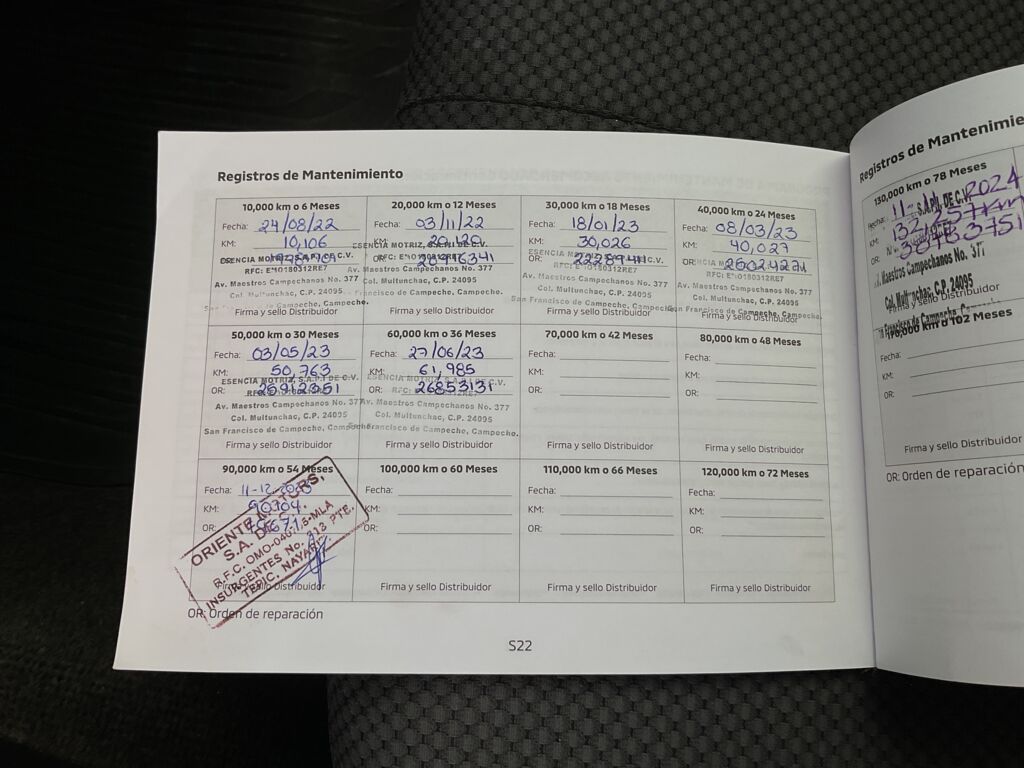 Registros de Mantenimiento
10,000 km o 6 Meses
Fecha: 24/08/22
KM: 10,106
ESENCIA MOTRIZ, S.A.P.I DE C.V.
RFC: E*IO180312RE7
Av. Maestros Campechanos No. 377
Col. Multunchac, C.P. 24095
San Francisco de Campeche, Campeche.
Firma y sello Distribuidor
20,000 km o 12 Meses
Fecha: 03/11/22
KM: 20,120
OR: 20496341
ESENCIA MOTRIZ, S.A.P.I DE C.V.
RFC: E*IO180312RE7
Av. Maestros Campechanos No. 377
Col. Multunchac, C.P. 24095.
Francisco de Campeche, Campeche.
Firma y sello Distribuidor
30,000 km o 18 Meses
Fecha: 18/01/23
KM: 30,026
OR: 22289411
RFC: E*IO180312RE7
Av. Maestros Campechanos No. 377
Col. Multunchac, C.P. 24095
San Francisco de Campeche, Campeche
Firma y sello Distribuidor
40,000 km o 24 Meses
Fecha: 08/03/23
KM: 40,027
OR: 26024271
RFC: E*IO180312RE7
Av. Maestros Campechanos No. 377
Col. Multunchac, C.P. 24095
San Francisco de Campeche, Campeche.
Firma y sello Distribuidor
50,000 km o 30 Meses
Fecha: 03/05/23
KM: 50,763
OR: 25912351
ESENCIA MOTRIZ, S.A.P.I DE C.V.
Av. Maestros Campechanos No. 377
Col. Multunchac, C.P. 24095
San Francisco de Campeche, Campeche.
Firma y sello Distribuidor
60,000 km o 36 Meses
Fecha: 27/06/23
KM: 61,985
OR: 26853131
ESENCIA MOTRIZ, S.A.P.I DE C.V.
Av. Maestros Campechanos No. 377
Col. Multunchac, C.P. 24095
San Francisco de Campeche, Campeche.
Firma y sello Distribuidor
70,000 km o 42 Meses
Fecha:
KM:
OR:
Firma y sello Distribuidor
80,000 km o 48 Meses
Fecha:
KM:
OR:
Firma y sello Distribuidor
90,000 km o 54 Meses
Fecha: 11-12-
KM: 90704
OR:
ORIENTE MOTORS,
S.A. DE C.V.
INSURGENTES No. 213 PTE.
TEPIC, NAYARIT
Firma y sello Distribuidor
100,000 km o 60 Meses
Fecha:
KM:
OR:
Firma y sello Distribuidor
110,000 km o 66 Meses
Fecha:
KM:
OR:
Firma y sello Distribuidor
120,000 km o 72 Meses
Fecha:
KM:
OR:
Firma y sello Distribuidor
OR: Orden de reparación
S22
Registros de Mantenimie
130,000 km o 78 Meses
Fecha: 11-11-2024
KM: 132,257km
S.A.P.I. DE C.V.
Maestros Campechanos No. 377
Col. Multunchac, C.P. 24095
Firma y sello Distribuidor
170,000 km o 102 Meses
Fecha:
KM:
OR:
Firma y sello Distribuidor
OR: Orden de reparación